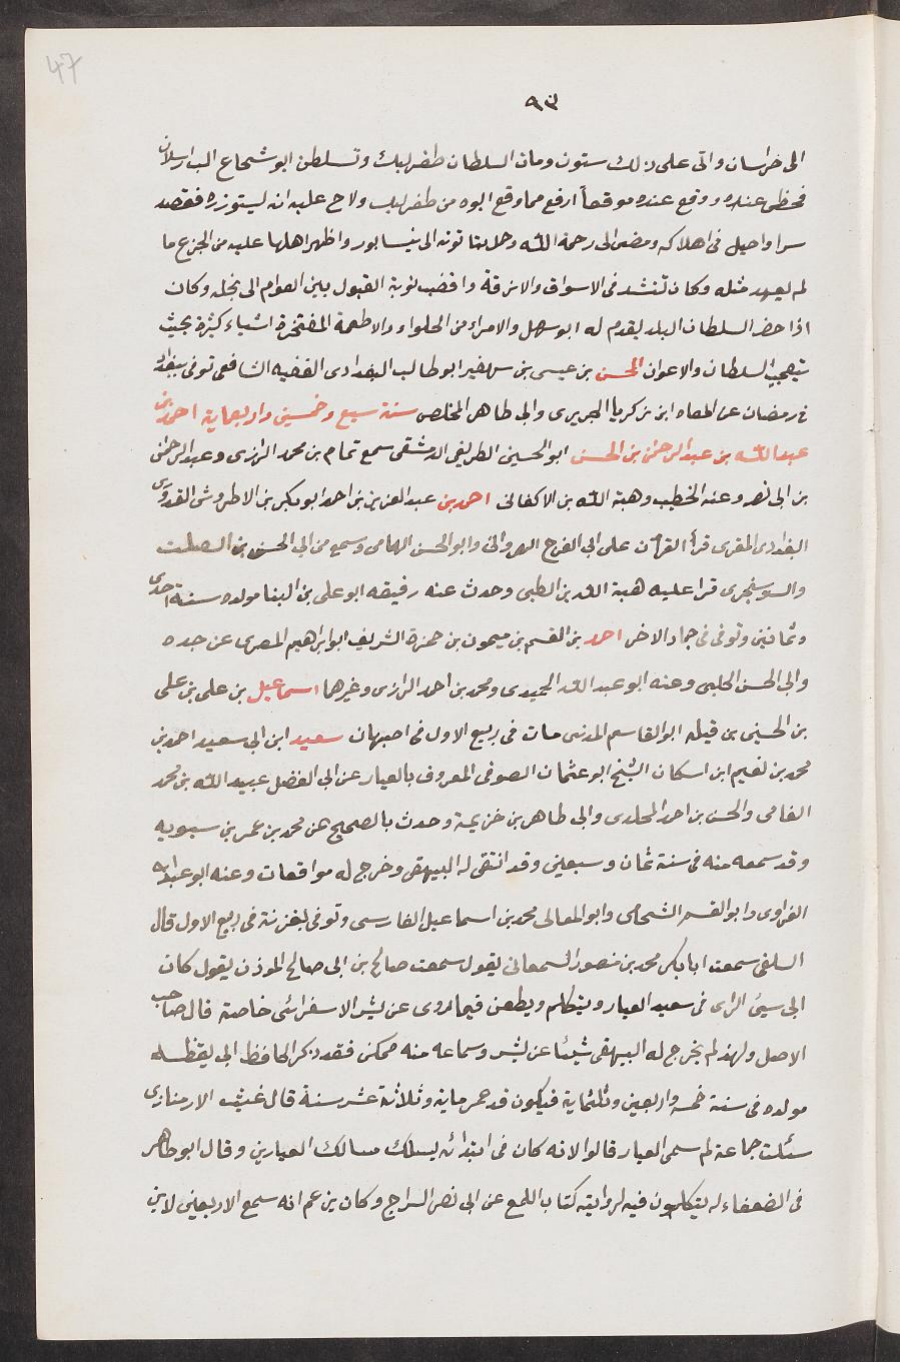 47
٩٣
الى خراسان واتى على ذلك ستون ومات السلطان طغرلبك وتسلطن ابو شجاع الب ارسلان
فحظى عنده ووقع عنده موقعاً ارفع مما وقع ابوه من طغرلبك ولاح عليه انه ليستوزره فقصد
سرا واحيل فى اهلاكه ومضى الى رحمة الله وحل بتابوته الى نيسابور واظهر اهلها عليه من الجزع ما
لم يعهد مثله وكان تنشد فى الاسواق والازقة واقضيب نوبة القبول بين العوام الى نجله وكان
اذا حضر السلطان البلد يقدم له ابو سهل والامراء من الحلواء والاطعمة المفتخرة اشياء كثيرة بحيث
يتعجب السلطان والاعوان الحسن بن عيسى بن سهفير ابو طالب البغدادى الفقيه الشافعى توفى ببغداد
فى رمضان عن المعاه ابن زكريا الجريرى وابى طاهر المخلص سنة سبع وخمسين واربعماية احمد بن
عبد الله بن عبد الرحمن بن الحسن ابو الحسين الطريفى الدمشقى سمع تمام بن محمد الرازى وعبد الرحمن
بن ابى نصر وعنه الخطيب وهبة الله بن الاكفانى احمد بن عبد العزيز بن احمد ابو بكر بن الاطروشى القدورى
البغدادى المقرى قرأ القرآن على ابى الفرج النهروانى وابو الحسن الحمامى وسمع من ابى الحسن بن الصلت
والسوسنجردى قرا عليه هبة الله بن الطبى وحدث عنه رفيقه ابو على بن البنا مولده سنة احدى
وثمانين وتوفى فى جماد الاخر احمد بن القسم بن ميمون بن حمزة الشريف ابو ابراهيم المصرى عن جده
وابى الحسن الحلبى وعنه ابو عبد الله الحميدى ومحمد بن احمد الرازى وغيرهما اسماعيل بن على بن على
بن الحسينى بن قيله ابو القاسم المدنى مات فى ربيع الاول فى اصبهان سعيد ابن ابى سعيد احمد بن
محمد بن نعيم ابن اسكان الشيخ ابو عثمان الصوفى المعروف بالعيار عن ابى الفضل عبيد الله بن محمد
الفامى والحسن بن احمد المخلدى وابى طاهر بن خزيمة وحدث بالصحيح عن محمد بن عمر بن سبويه
وقد سمعه منه فى سنة ثمان وسبعين وقد انتقى له البيهقى وخرج له موافقات وعنه ابو عبد الله
الفراوى وابو القسم الشحامى وابو المعالى محمد بن اسماعيل الفارسى وتوفى بغزنة فى ربيع الاول قال
السلفى سمعت ابا بكر محمد بن منصور السمعانى يقول سمعت صالح بن ابى صالح الموذن يقول كان
ابى سيئ الراى فى سعيد العيار ويتكلم ويطعن فيما روى عن بشر الاسفرائنى خاصة قال صاحب
الاصل ولهذا لم يخرج له البيهقى شيئا عن بشر وسماعه منه ممكن فقد ذكر الحافظ ابى يقظه
مولده فى سنة خمس واربعين وثلثماية فيكون قد عمر ماية وثلاثة عشر سنة قال غيث الارمنازى
سئلت جماعة لم سمى العيار قالوا لانه كان فى ابتدائه يسلك مسالك العيارين وقال ابو طاهر
فى الضعفاء له يتكلمون فيه لروايته كتاب اللمع عن ابى نصر السراج وكان يزعم انه سمع الاربعين لابن